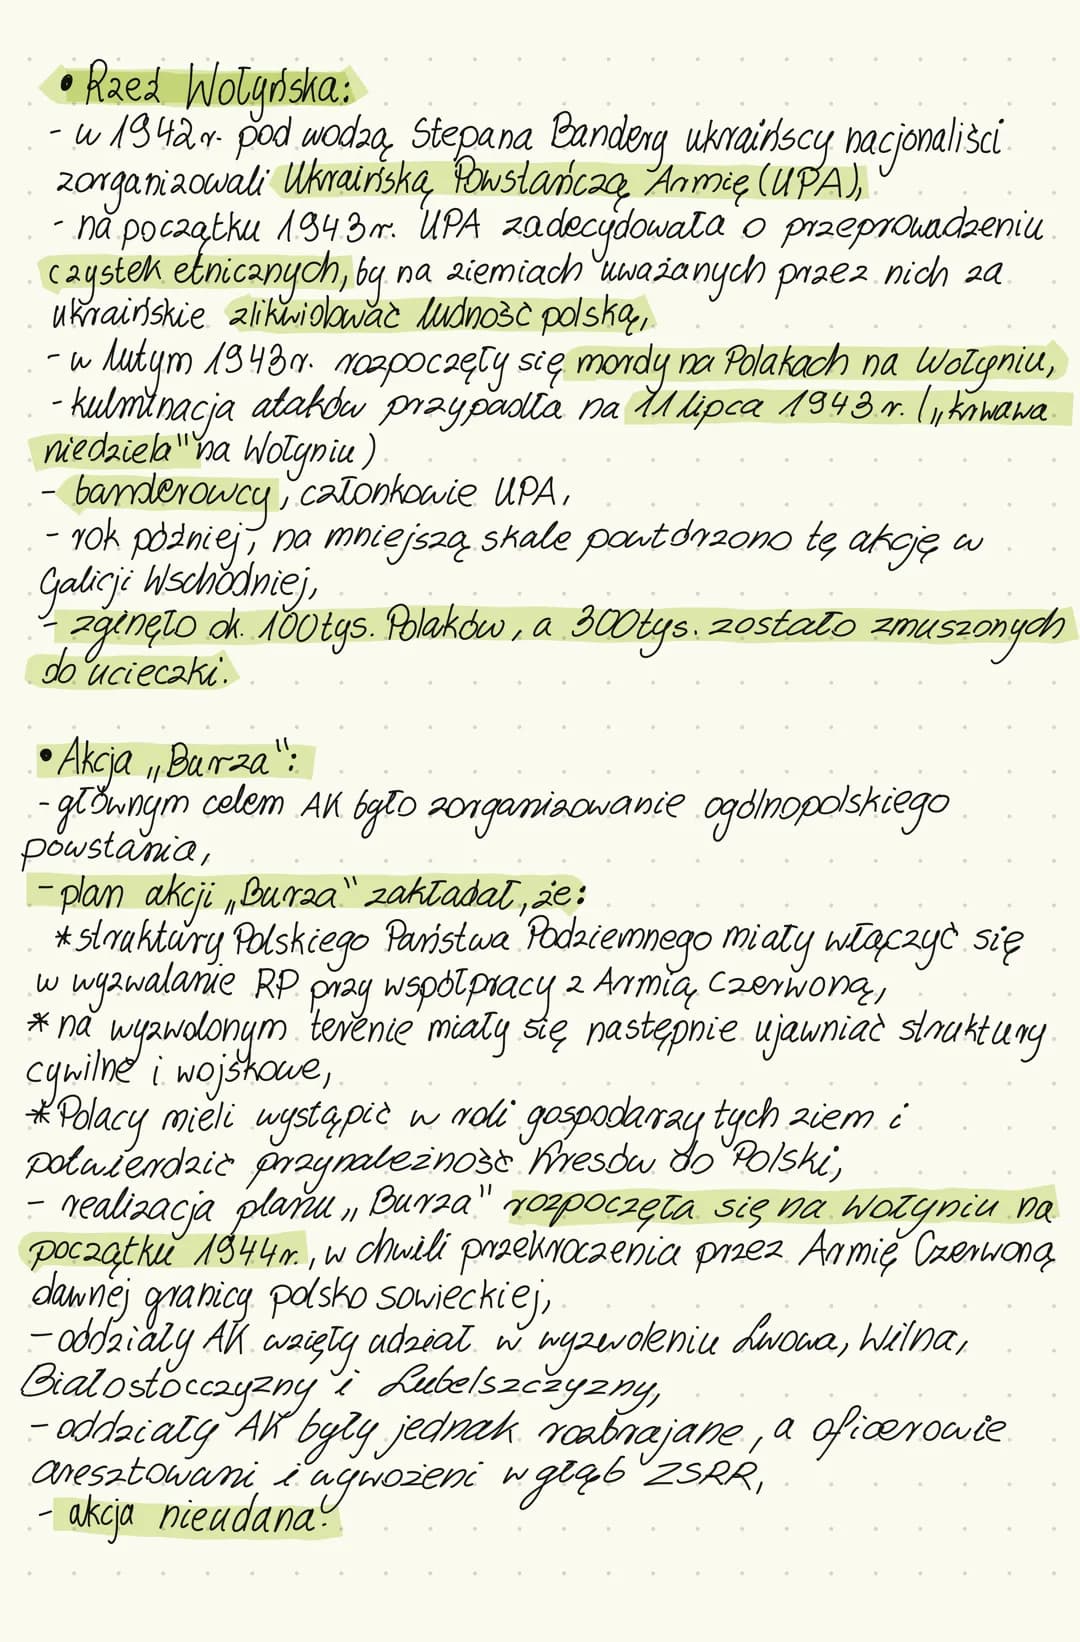 • Rzeź Wołyńska:
- w 1942 r. pod wodzą Stepana Bandery ukraińscy nacjonaliści
zorganizowali Ukraińską Powstańczą Armię (UPA),
- na początku 1943 r. UPA zadecydowała o przeprowadzeniu
czystek etnicznych, by na ziemiach uważanych przez nich za
ukraińskie zlikwidować ludność polską,
- w lutym 1943 r. rozpoczęły się mordy na Polakach na Wołyniu,
- kulminacja ataków przypadła na 11 lipca 1943 r. („krwawa
niedziela" na Wołyniu)
- banderowcy, członkowie UPA,
- rok później, na mniejszą skale powtórzono tę akcję w
Galicji Wschodniej,
- zginęło ok. 100 tys. Polaków, a 300 tys. zostało zmuszonych
do ucieczki.
• Akcja „Burza":
- głównym celem AK było zorganizowanie ogólnopolskiego
powstania,
- plan akcji „Burza" zakładał, że:
* struktury Polskiego Państwa Podziemnego miały włączyć się
w wyzwalanie RP przy współpracy z Armią Czerwoną,
* na wyzwolonym terenie miały się następnie ujawniać struktury
cywilne i wojskowe,
* Polacy mieli wystąpić w roli gospodarzy tych ziem i
potwierdzić przynależność Kresów do Polski,
- realizacja planu „Burza" rozpoczęła się na Wołyniu na
początku 1944 r., w chwili przekroczenia przez Armię Czerwoną
dawnej granicy polsko sowieckiej,
- oddziały AK wzięły udział w wyzwoleniu Lwowa, Wilna,
Białostocczyzny i Lubelszczyzny,
- oddziały AK były jednak rozbrajane, a oficerowie
aresztowani i wywożeni w głąb ZSRR,
- akcja nieudana.